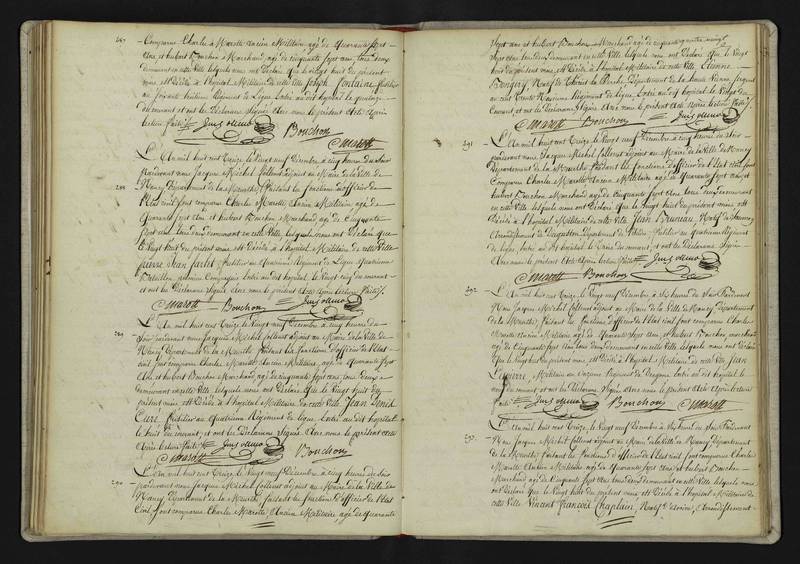 287
Comparus Charles Marotte ancien Militaire, agé de quarante sept
ans et hubert Bouchon Marchand, agé de cinquante sept ans, tous deux
demeurant en cette Ville lesquels nous ont Déclaré que le vingt huit du présent
mois, est Décédé à l'hopital Militaire de cette Ville Joseph Fontaine, fusilier
au Régiment de Ligne, Entré au dit hopital le
du courant et ont les Déclarans Signés Avec nous le présent Acte Après
lecture faite.
Bouchon
Marotte
L'An mil huit cent treize, le Vingt neuf Décembre à cinq heures du Soir
pardevant nous Jacques Michel follenot adjoint au Maire de la Ville de
288
Nancy Département de la Meurthe, faisant les fonctions d'officier de
l'Etat civil, sont comparus Charles Marotte Ancien Militaire, agé de
Quarante sept ans et hubert Bouchon Marchand, agé de Cinquante
sept ans, tous deux demeurant en cette Ville, lesquels nous ont Déclaré que
le Vingt huit du présent mois, est Décédé à l'hopital Militaire de cette Ville
pierre Jean farlet fusilier au quatrième Régiment de Ligne, quatrième
Bataillon, première Compagnie, Entré au dit hopital, le Vingt cinq du courant
et ont les Déclarans Signés Avec nous le présent Acte Après lecture faite.
Marotte Bouchon
289
L'An mil huit cent treize, le Vingt neuf Décembre à cinq heures du
Soir pardevant nous Jacques Michel follenot adjoint au Maire de la Ville de
Nancy Département de la Meurthe faisant les fonctions d'officier de l'Etat
civil, sont comparus Charles Marotte, Ancien Militaire, agé de quarante sept
ans et hubert Bouchon Marchand, agé de cinquante sept ans, tous deux
demeurant en cette Ville, lesquels nous ont Déclaré que le Vingt huit du
présent mois est Décédé à l'hopital Militaire de cette Ville, Jean Denis
Curé fusilier au quatrième Régiment de ligne, Entré au dit hopital
le huit du courant, et ont les Déclarans Signés Avec nous le présent Acte
Après lecture faite.
Marotte Bouchon
L'An mil huit cent treize, le Vingt neuf Décembre à cinq heures du Soir
pardevant nous Jacques Michel follenot adjoint au Maire de la Ville de
290
Nancy Département de la Meurthe faisant les fonctions d'officier de l'Etat
Civil, sont comparus Charles Marotte, Ancien Militaire, agé de quarante
Sept ans et hubert Bouchon Marchand, agé de cinquante
sept ans tous deux demeurant en cette Ville, lesquels nous ont Déclaré que le Vingt
huit du présent mois, est Décédé à l'hopital Militaire de cette Ville Etienne
Département de la haute Vienne, Sergent
au Régiment de ligne, Entré au dit hopital le Vingt du
Courant, et ont les Déclarans Signés, Avec nous le présent Acte Après lecture faite.
Marotte Bouchon
L'An mil huit cent treize, le Vingt neuf Décembre à cinq heures du Soir
291
pardevant nous, Jacques Michel follenot adjoint au Maire de la Ville de Nancy
Département de la Meurthe faisant les fonctions d'officier de l'Etat civil, sont
Comparus Charles Marotte Ancien Militaire, agé de quarante sept ans, et
hubert Bouchon Marchand, agé de cinquante sept ans, tous deux demeurant
en cette Ville, lesquels nous ont Déclaré que le Vingt huit du présent mois est
Décédé à l'hopital Militaire de cette Ville, Jean Bruneau, Natif de
Arrondissement de Département de fusilier au quatrième Régiment
de ligne, Entré au dit hopital le treize du courant, et ont les Déclarans Signés
Avec nous le présent Acte Après lecture faite.
Marotte Bouchon
292
L'An mil huit cent treize, le Vingt neuf Décembre à Six heures du Soir Pardevant
Nous Jacques Michel follenot adjoint au Maire de la Ville de Nancy Département
de la Meurthe, faisant les fonctions d'officier de l'Etat civil, sont comparus Charles
Marotte Ancien Militaire, agé de quarante sept ans, et hubert Bouchon, marchand
agé de Cinquante sept ans, tous deux demeurant en cette Ville, lesquels nous ont Déclaré
Que le Vingt huit du présent mois, est Décédé à l'hopital Militaire de cette Ville Jean
Militaire au Régiment de Dragons, Entré au dit hopital le
du courant et ont les Déclarans Signés Avec nous le présent Acte Après lecture
faite.
Bouchon Marotte
L'An mil huit cent treize, le Vingt neuf Décembre à Six heures du Soir Pardevant
293
Nous Jacques Michel follenot adjoint au Maire de la Ville de Nancy Département
de la Meurthe, faisant les fonctions d'officier de l'Etat civil, sont comparus Charles
Marotte Ancien Militaire, agé de quarante sept ans, et hubert Bouchon
Marchand agé de Cinquante sept ans, tous deux demeurant en cette Ville, lesquels nous
ont Déclaré que le Vingt huit du présent mois, est Décédé à l'hopital Militaire de
cette Ville, Vincent François Chaplain, Natif Arrondissement